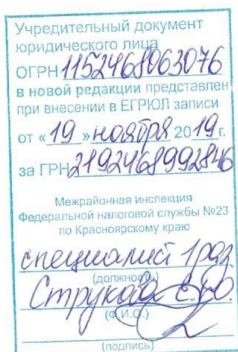 Учредительный документ
юридического лица
ОГРН 1152468063076
в новой редакции представлен
при внесении в ЕГРЮЛ записи
от «19» ноября 2019 г.
за ГРН 2192468992846
Межрайонная инспекция
Федеральной налоговой службы №23
по Красноярскому краю
специалист 1 раз
(должность)
Струкова С.В.
(Ф.И.О.)
(подпись)